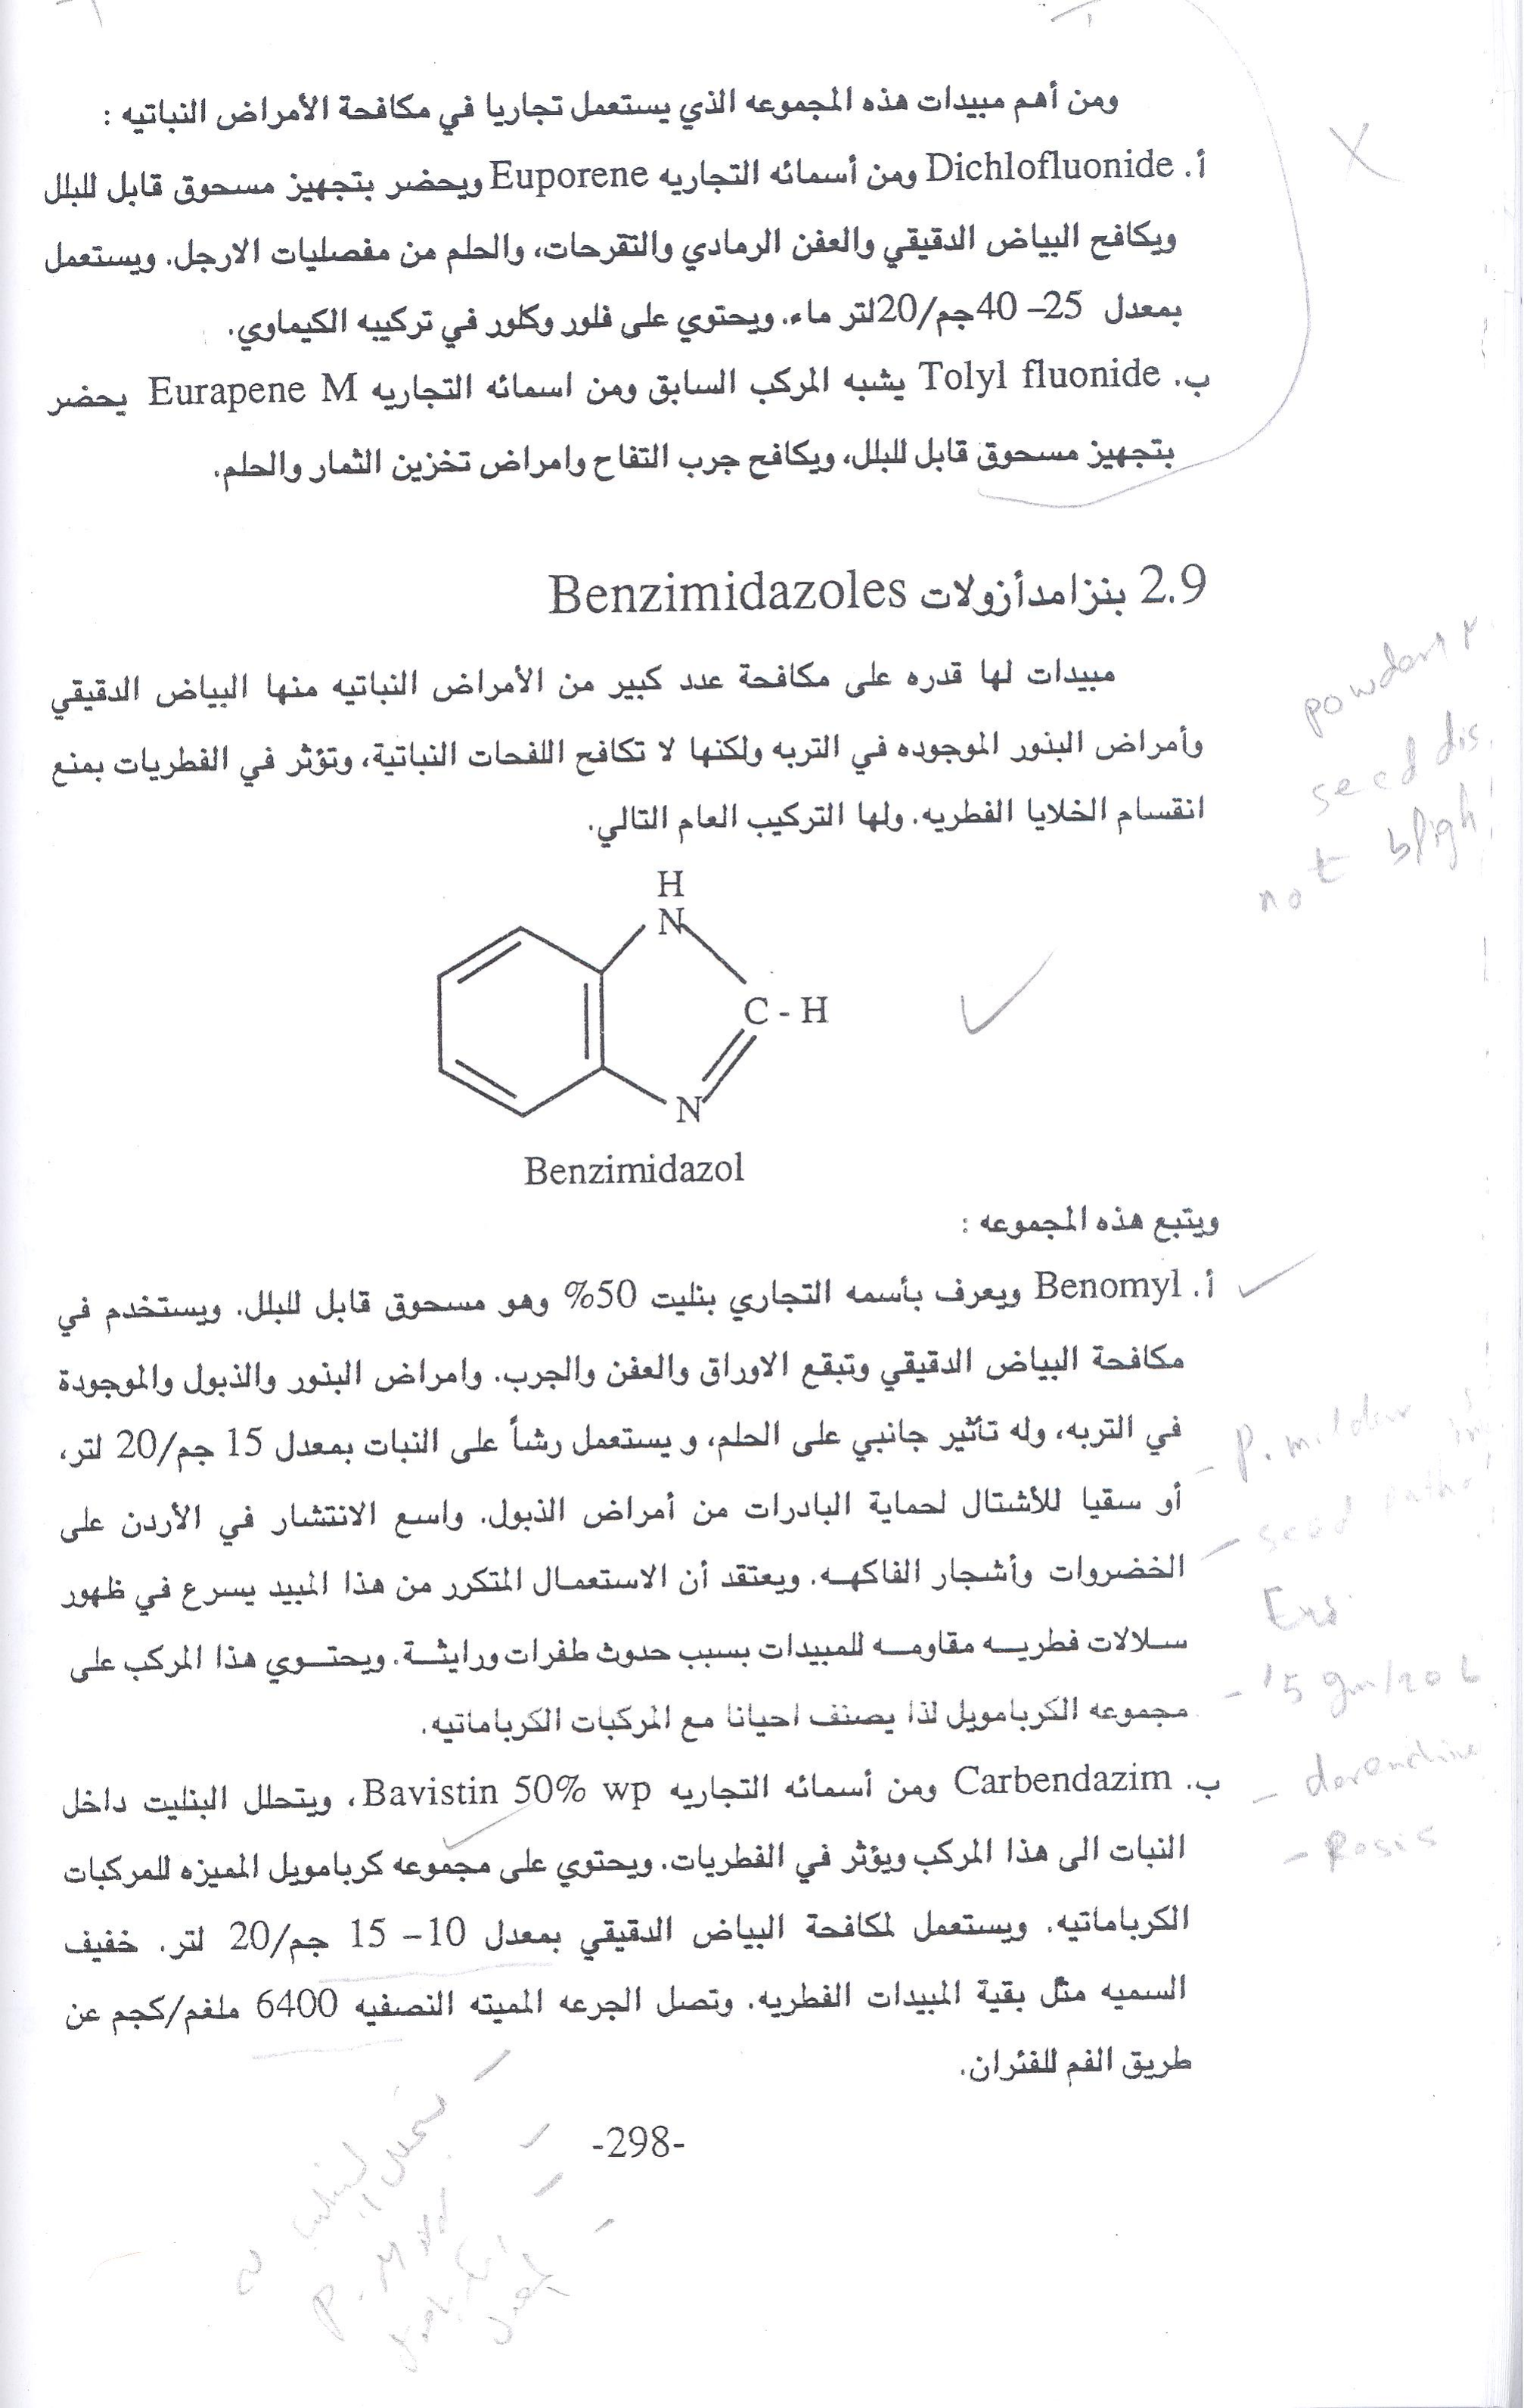 ومن أهم مبيدات هذه المجموعه الذي يستعمل تجاريا في مكافحة الأمراض النباتيه :
أ. Dichlofluonide ومن أسمائه التجاريه Euporene ويحضر بتجهيز مسحوق قابل للبلل
ويكافح البياض الدقيقي والعفن الرمادي والتقرحات، والحلم من مفصليات الارجل. ويستعمل
بمعدل 25– 40جم/20لتر ماء. ويحتوي على فلور وكلور في تركيبه الكيماوي.
ب. Tolyl fluonide يشبه المركب السابق ومن اسمائه التجاريه Eurapene M يحضر
بتجهيز مسحوق قابل للبلل، ويكافح جرب التفاح وامراض تخزين الثمار والحلم.
2.9 بنزامدأزولات Benzimidazoles
مبيدات لها قدره على مكافحة عدد كبير من الأمراض النباتيه منها البياض الدقيقي
وأمراض البذور الموجوده في التربه ولكنها لا تكافح اللفحات النباتية، وتؤثر في الفطريات بمنع
انقسام الخلايا الفطريه. ولها التركيب العام التالي.
seed dis.
not
H
N
C - H
N
Benzimidazol
ويتبع هذه المجموعه :
أ. Benomyl ويعرف بأسمه التجاري بنليت 50% وهو مسحوق قابل للبلل. ويستخدم في
مكافحة البياض الدقيقي وتبقع الاوراق والعفن والجرب. وامراض البذور والذبول والموجودة
في التربه، وله تأثير جانبي على الحلم، و يستعمل رشاً على النبات بمعدل 15 جم/20 لتر،
أو سقيا للأشتال لحماية البادرات من أمراض الذبول. واسع الانتشار في الأردن على
الخضروات وأشجار الفاكهه. ويعتقد أن الاستعمال المتكرر من هذا المبيد يسرع في ظهور
سلالات فطريه مقاومه للمبيدات بسبب حدوث طفرات ورايثة. ويحتوي هذا المركب على
مجموعه الكربامويل لذا يصنف احيانا مع المركبات الكرباماتيه.
- P.
- seed
- 15 gm/20 L
ب. Carbendazim ومن أسمائه التجاريه Bavistin 50% wp، ويتحلل البنليت داخل
النبات الى هذا المركب ويؤثر في الفطريات. ويحتوي على مجموعه كربامويل المميزه للمركبات
الكرباماتيه. ويستعمل لمكافحة البياض الدقيقي بمعدل 10– 15 جم/20 لتر. خفيف
السميه مثل بقية المبيدات الفطريه. وتصل الجرعه المميته النصفيه 6400 ملغم/كجم عن
طريق الفم للفئران.
-298-